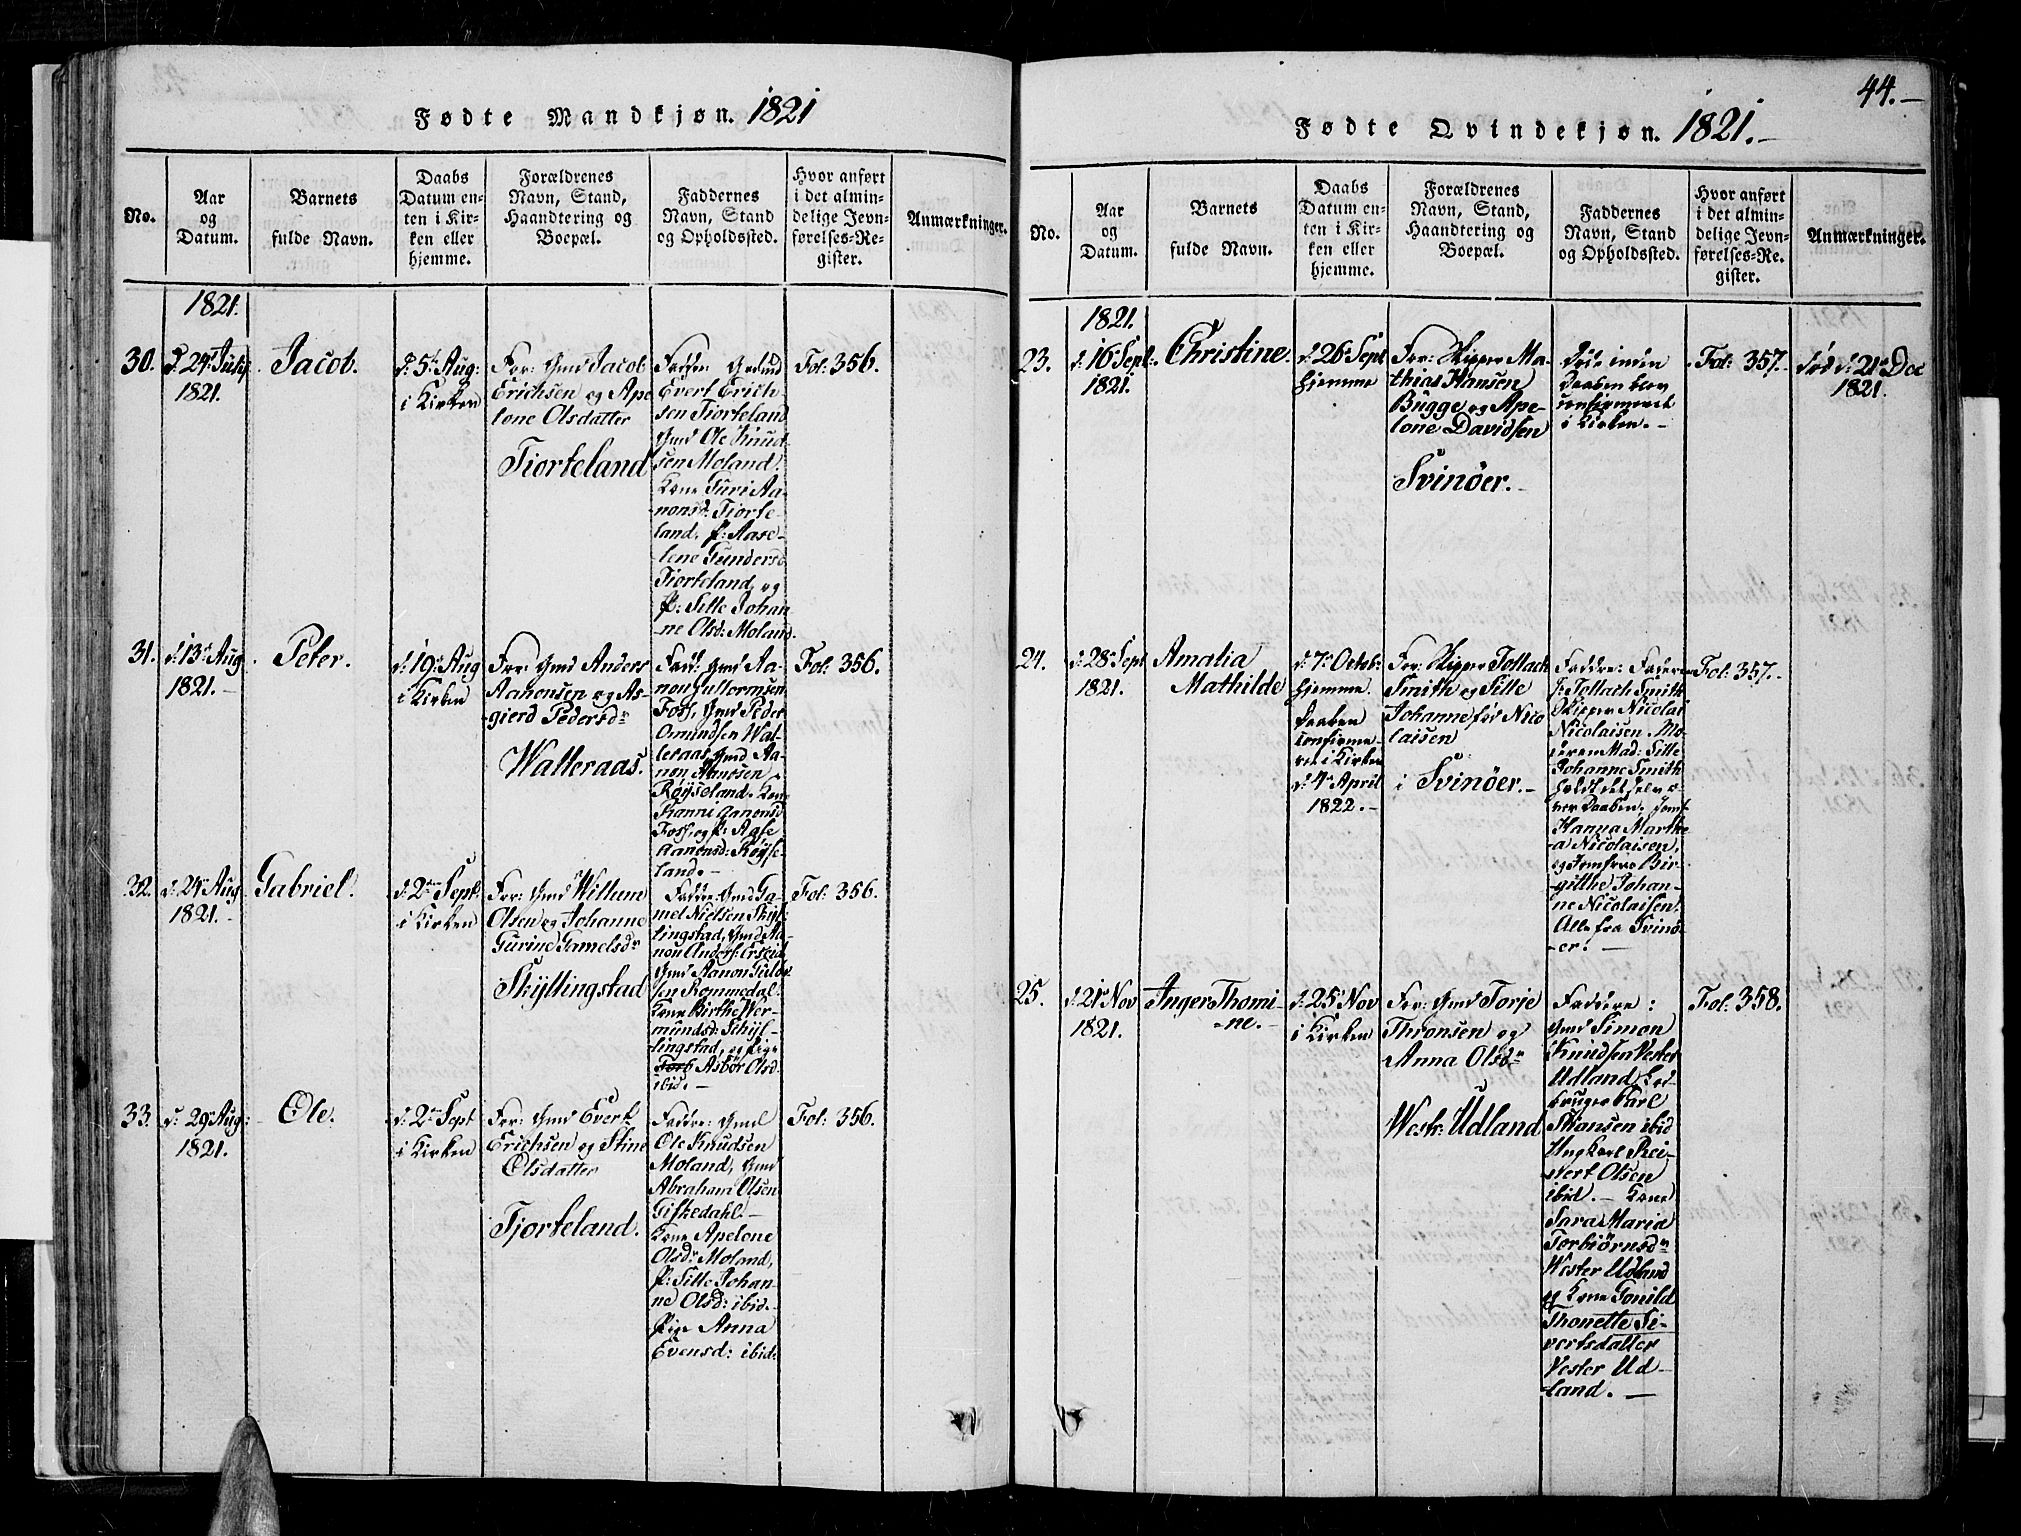 Fødte Mandkjøn. 1821
No.
Aar
og
Datum.
Barnets
fulde Navn.
Daabs
Datum en-
ten i Kir-
ken eller
hjemme.
Forældrenes
Navn, Stand,
Haandtering og
Boepæl.
Faddernes
Navn, Stand
og Opholdssted.
Hvor anført
i det almin-
delige Jevn-
førelses-Re-
gister.
Anmærkninger.
1821.
30.
d. 24 July
1821.
Jacob.
d: 5te Aug:
i Kirken
For: Gmd Jacob
Erichsen og Ape
lone Olsdatter
Tiorteland
Faddre: Gmd
Evert Erich-
sen Tiorteland
Gmd Ole Knud
sen Moland.
Kone Turi Aa-
nonsd: Tiorte-
land. P: Aase-
lene Gundersd
Tiorteland, og
P: Sille Johan
ne Olsd: Moland.
Fol: 356.
31.
d. 13de Aug
1821.
Peter.
d: 19de Aug
i Kirken
For: Gmd Anders
Aanonsen og As-
gierd Pedersdr
Walleraas.
Fadd: Gmd Aa-
non Guttormsen
Foss, Gmd Peder
Omundsen Wal-
leraas, Gmd Aa-
non Hansen
Røÿseland. Kone
Tranni Aanonsd
Foss, og P: Aase
Aanonsd: Røÿse-
land.-
Fol: 356.
32.
d. 24de Aug
1821.-
Gabriel.
d: 2den Sept:
i Kirken
For: Gmd Willum
Olsen og Johanne
Gurine Gamelsdr
Skÿllingstad
Faddre: Gmd Ga-
mel Nielsen Skÿl-
lingstad, Gmd Aa-
non Anders: Erseid,
Gmd Aanon
sen Rommedal.
Kone Birthe Wer-
mundsd: Schÿl-
lingstad, og Pige
Asbør Olsd
ibid.-
Fol: 356.
33.
d: 29de Aug:
1821.
Ole.
d: 2den Sept
i Kirken
For: Gmd Evert
Erichsen og Stine
Olsdatter
Tjorteland.
Faddre: Gmd
Ole Knudsen
Moland, Gmd
Abraham Olsen
Giskedahl.-
Kone Apelone
Olsdr Moland,
P: Sille Johan-
ne Olsd: ibid.-
Pige Anna
Evensd: ibid:
Fol: 356.
44.-
Fødte Qvindekjøn. 1821.-
No.
Aar
og
Datum.
Barnets
fulde Navn.
Daabs
Datum en-
ten i Kir-
ken eller
hjemme.
Forældrenes
Navn, Stand,
Haandtering og
Boepæl.
Faddernes
Navn, Stand
og Opholdssted.
Hvor anført
i det almin-
delige Jevn-
førelses-Re-
gister.
Anmærkninger.
1821.
23.
d: 16 Sept:
1821.
Christine.
d 26 Sept
hjemme
For: Skipper Ma-
thias Hansen
Bugge og Ape-
lone Davidsen
Svinöer.-
Døde inden
Daaben blev
confirmeret
i Kirken.-
Fol: 357.
død d: 21de Dec
1821.
24.
d: 28 Sept
1821.
Amalia
Mathilde
d. 7de Octob:
hjemme.
Daaben
confirme-
ret i Kirken
d: 4de April
1822.-
For: Skipper Tollach
Smith og Sille
Johanne fød Nico
laisen
i Svinöer.-
Faddre: Faderen
S: Tollach Smith
Skipper Nicolai
Nicolaisen. Mo-
deren Mad: Sille
Johanne Smith
holdt det selv o-
ver Daaben. Jomf
Hanna Marthe
a Nicolaisen,
og Jomfrue Bir-
gitthe Johan-
ne Nicolaisen.
Alle fra Svinö-
er.-
Fol: 357.
25.
d: 21de Nov
1821.
Anger Thomi-
ne.-
d: 25 Nov
i Kirken
For: Gmd Torje
Thronsen og
Anna Olsdr
Westr: Udland
Faddere:
Gmd Simon
Knudsen Vester
Udland,
bruger Carl
Hansen ibid
Ungkarl Rei-
ert Olsen
ibid.- Kone
Sara Maria
Torbiörnsdr
Wester Udland
og Kone Gonild
Thonette Si-
vertsdatter
Vester Ud-
land.-
Fol: 358.